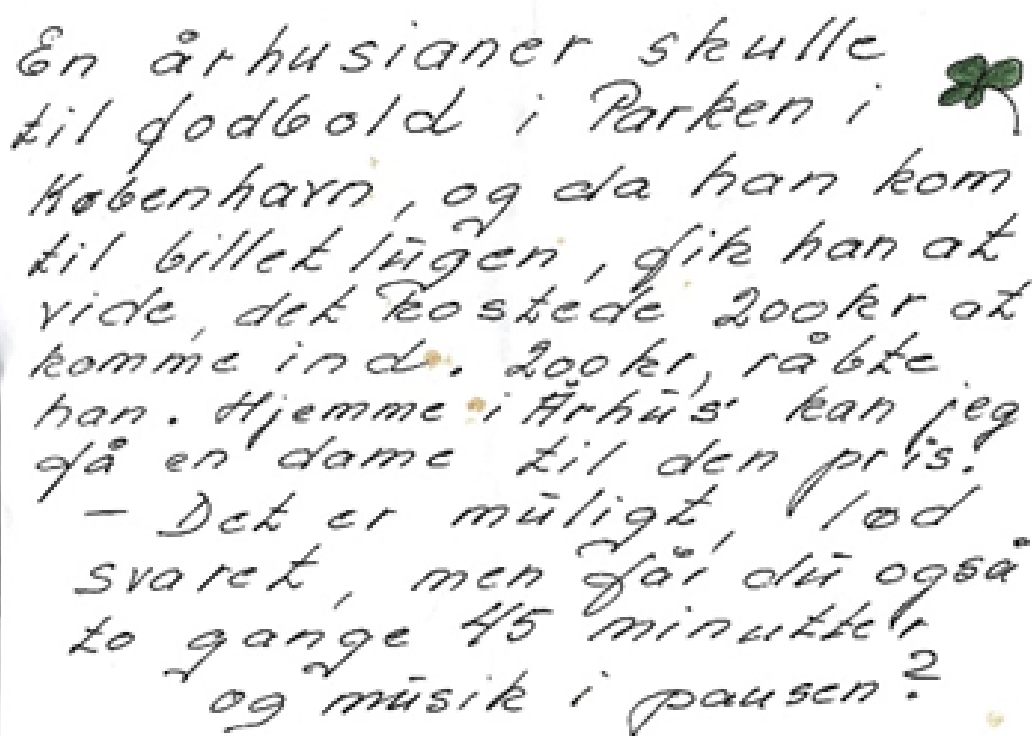 En århusianer skulle
til fodbold i Parken i
København, og da han kom
til billetlūgen, fik han at
vide, det kostede 200kr at
komme ind. 200kr, råbte
han. Hjemme i Århūs kan jeg
få en dame til den pris!
- Det er mūligt, lød
svaret, men får dū også
to gange 45 minutter
og mūsik i pausen?